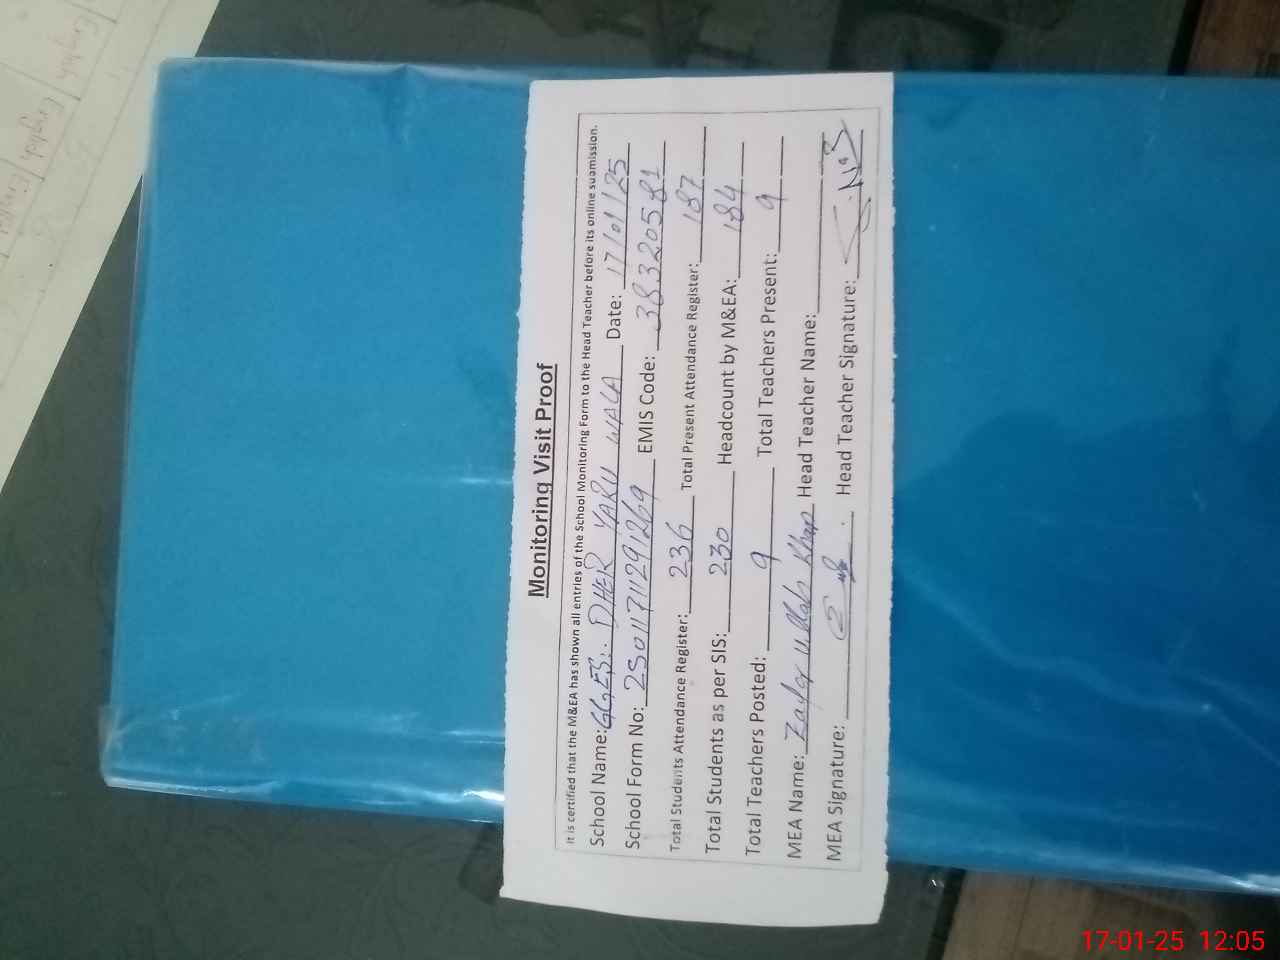 Monitoring Visit Proof
It is certified that the M&EA has shown all entries of the School Monitoring Form to the Head Teacher before its online suamission.
School Name: GGES. DHER YARU WALA Date: 17/01/25
School Form No: 25011711291269 EMIS Code: 38320581
Total Students Attendance Register: 236 Total Present Attendance Register: 187
Total Students as per SIS: 230 Headcount by M&EA: 184
Total Teachers Posted: 9 Total Teachers Present: 9
MEA Name: Zafar Ullah Khan Head Teacher Name:
MEA Signature: Head Teacher Signature:
English
English
17-01-25 12:05